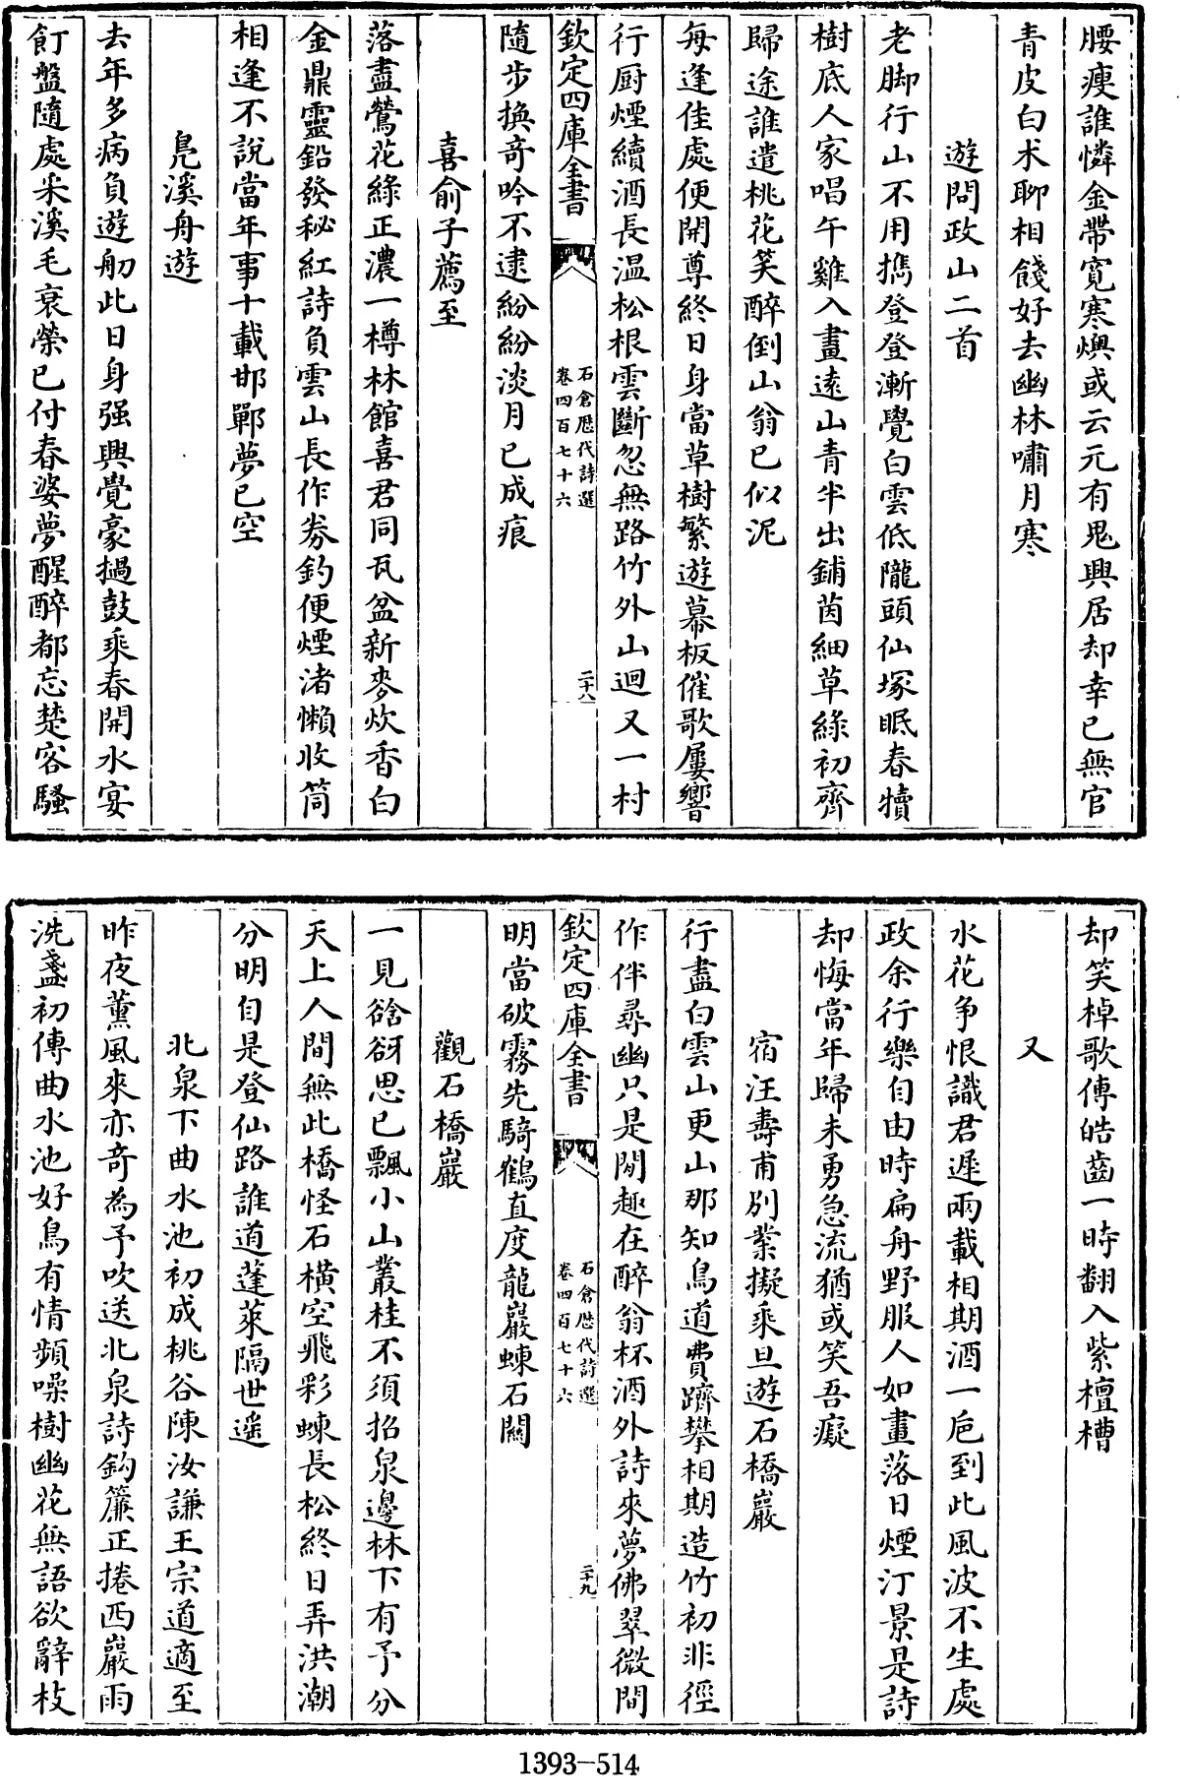 腰瘦誰憐金帶寛寒燠或云元有鬼興居却幸已無官
青皮白术聊相餞好去幽林嘯月寒
遊問政山二首
老脚行山不用擕登登漸覺白雲低隴頭仙塚眠春犢
樹底人家唱午雞入畫逺山青半出鋪茵細草綠初齊
歸途誰遣桃花笑醉倒山翁已似泥
每逢佳處便開尊終日身當草樹繁遊幕板催歌屢響
行厨煙續酒長温松根雲斷忽無路竹外山迴又一村
欽定四庫全書
石倉歴代詩選
卷四百七十六
二十八
隨步換竒吟不逮紛紛淡月已成痕
喜俞子薦至
落盡鶯花綠正濃一樽林館喜君同瓦盆新麥炊香白
金鼎靈鉛發秘紅詩負雲山長作券釣便煙渚懶收筒
相逢不說當年事十載邯鄲夢已空
鳧溪舟遊
去年多病負遊舠此日身强興覺豪撾鼓乘春開水宴
飣盤隨處采溪毛衰榮已付春婆夢醒醉都忘楚客騷
却笑棹歌傳皓齒一時翻入紫檀槽
又
水花争恨識君遲兩載相期酒一巵到此風波不生處
政余行樂自由時扁舟野服人如畫落日煙汀景是詩
却悔當年歸未勇急流猶或笑吾癡
宿汪壽甫别業擬乘旦遊石橋巖
行盡白雲山更山那知鳥道費躋攀相期造竹初非徑
作伴尋幽只是閒趣在醉翁杯酒外詩來夢佛翠微間
欽定四庫全書
石倉歴代詩選
卷四百七十六
二十九
明當破霧先騎鶴直度龍巖蝀石關
觀石橋巖
一見谽谺思已飄小山叢桂不須招泉邊林下有予分
天上人間無此橋怪石橫空飛彩蝀長松終日弄洪潮
分明自是登仙路誰道蓬萊隔世遥
北泉下曲水池初成桃谷陳汝謙王宗道適至
昨夜薰風來亦竒為予吹送北泉詩鈎簾正捲西巖雨
洗盞初傳曲水池好鳥有情頻噪樹幽花無語欲辭枝
1393-514